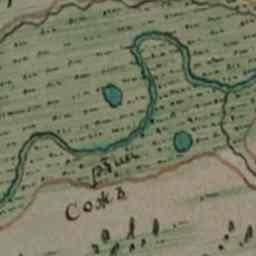 рѣки
Сожъ